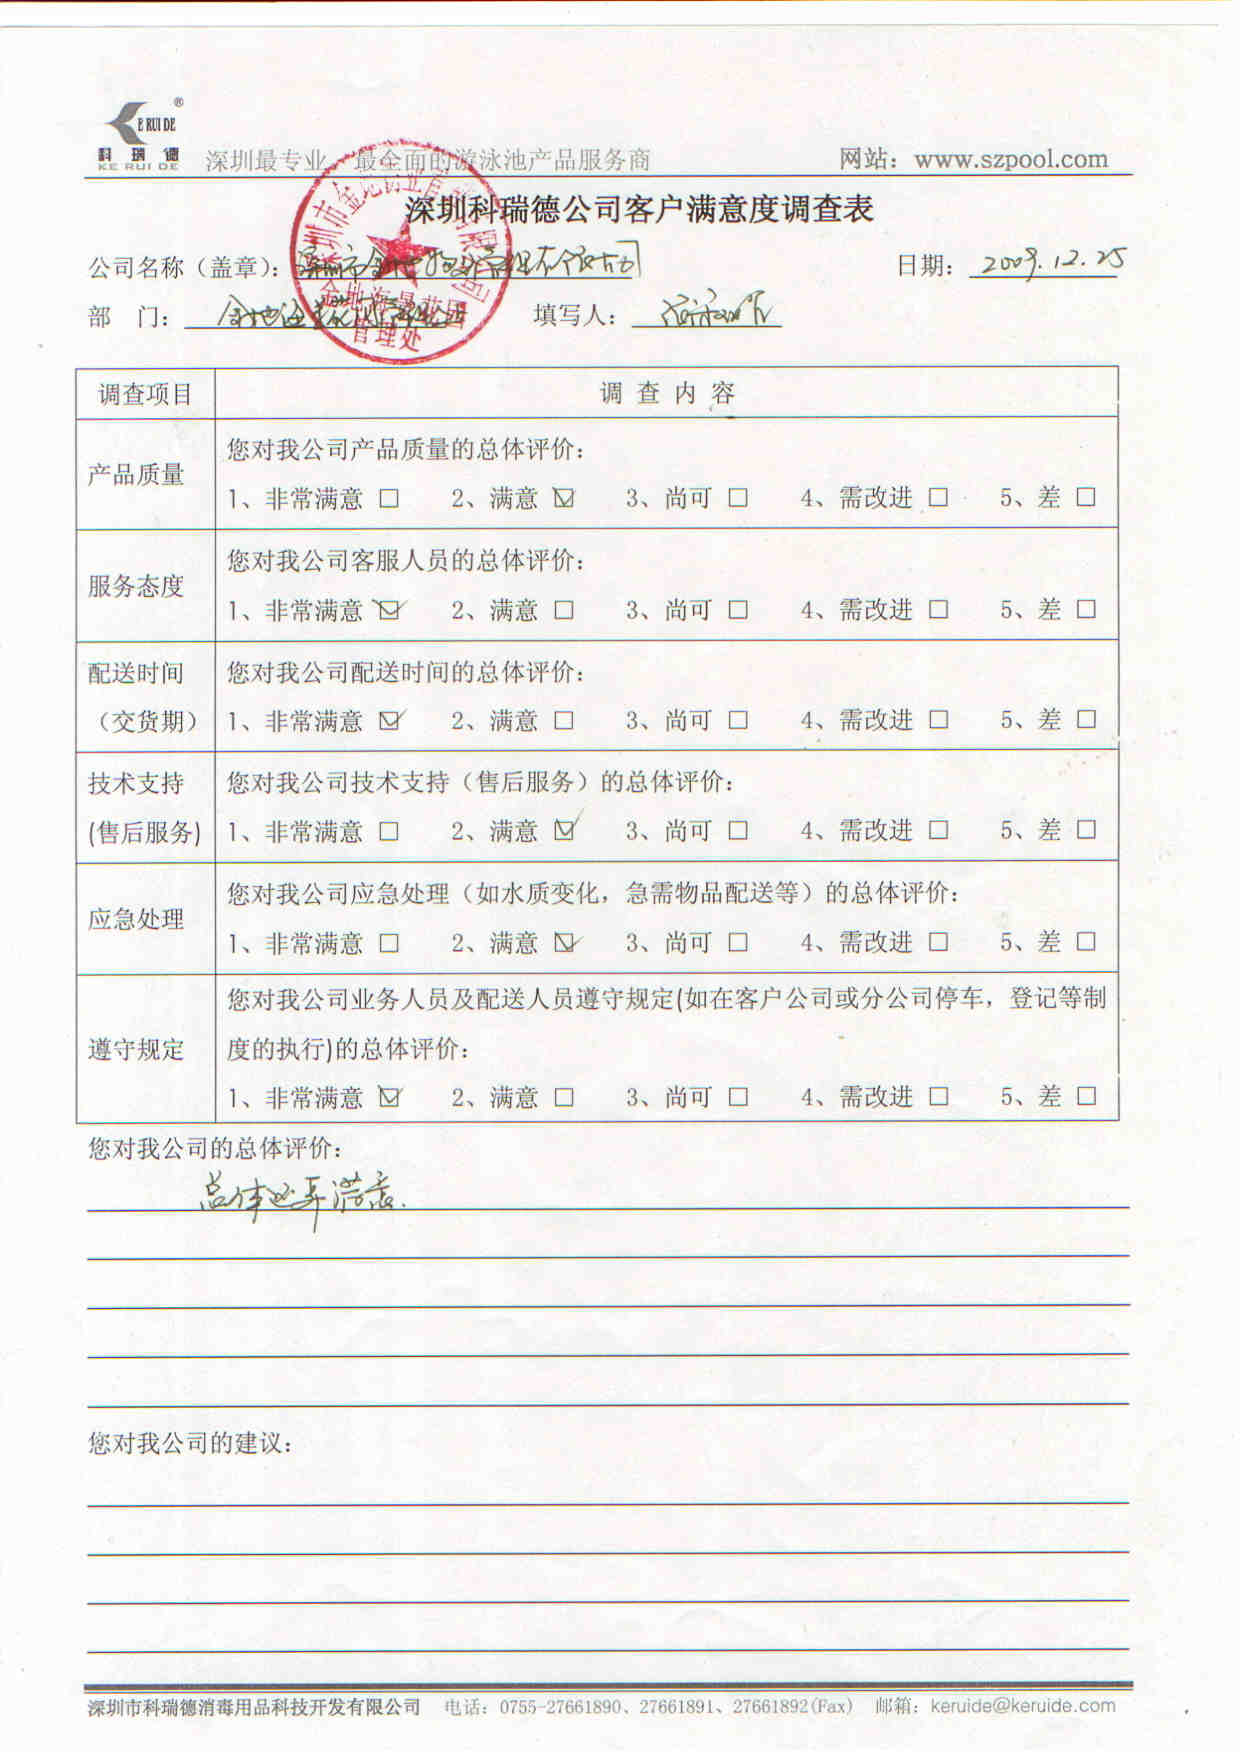 E RUI DE ®
科瑞德
KE RUI DE
深圳最专业、最全面的游泳池产品服务商 网站：www.szpool.com
深圳科瑞德公司客户满意度调查表
公司名称（盖章）：深圳市金地物业管理有限公司 日期：2009.12.25
部 门：金地海景花园管理处 填写人：
深圳市金地物业管理有限公司
金地海景花园
管理处
调查项目 调 查 内 容
产品质量 您对我公司产品质量的总体评价：
1、非常满意 □ 2、满意 ☑ 3、尚可 □ 4、需改进 □ 5、差 □
服务态度 您对我公司客服人员的总体评价：
1、非常满意 ☑ 2、满意 □ 3、尚可 □ 4、需改进 □ 5、差 □
配送时间 您对我公司配送时间的总体评价：
（交货期） 1、非常满意 ☑ 2、满意 □ 3、尚可 □ 4、需改进 □ 5、差 □
技术支持 您对我公司技术支持（售后服务）的总体评价：
(售后服务) 1、非常满意 □ 2、满意 ☑ 3、尚可 □ 4、需改进 □ 5、差 □
应急处理 您对我公司应急处理（如水质变化，急需物品配送等）的总体评价：
1、非常满意 □ 2、满意 ☑ 3、尚可 □ 4、需改进 □ 5、差 □
遵守规定 您对我公司业务人员及配送人员遵守规定(如在客户公司或分公司停车，登记等制
度的执行)的总体评价：
1、非常满意 ☑ 2、满意 □ 3、尚可 □ 4、需改进 □ 5、差 □
您对我公司的总体评价：
总体还算满意.
您对我公司的建议：
深圳市科瑞德消毒用品科技开发有限公司 电话：0755-27661890、27661891、27661892(Fax) 邮箱：keruide@keruide.com